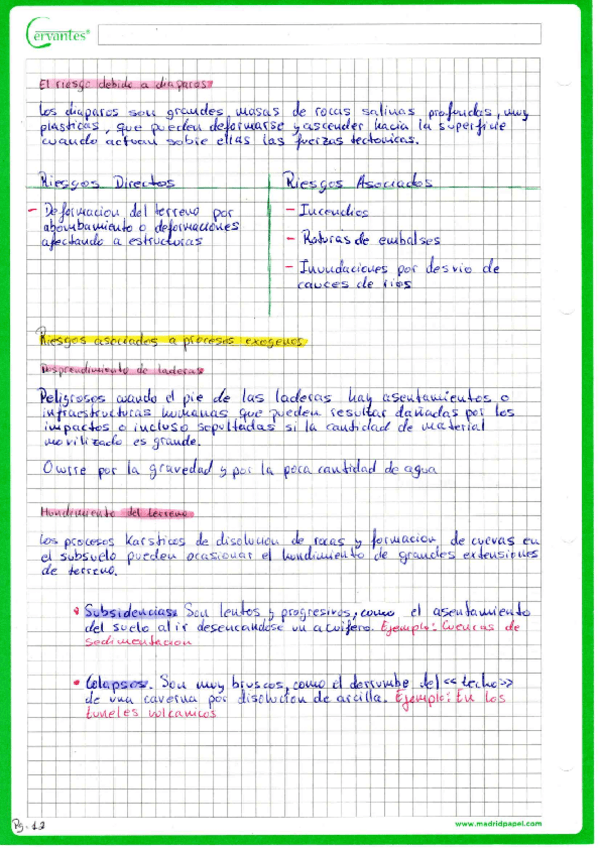 Cervantes®
El riesgo debido a diapiros
Los diapiros son grandes masas de rocas salinas, profundas, muy
plasticas, que pueden deformarse y ascender hacia la superficie
cuando actuan sobre ellas las fuerzas tectonicas.
Riesgos Directos
- Deformacion del terreno por
abombamiento o deformaciones
afectando a estructuras
Riesgos Asociados
- Incendios
- Roturas de embalses
- Inundaciones por desvio de
cauces de rios
Riesgos asociados a procesos exogenos
Desprendimiento de laderas
Peligrosos cuando el pie de las laderas hay asentamientos o
infraestructuras humanas que pueden resultar dañadas por los
impactos o incluso sepultadas si la cantidad de material
movilizado es grande.
Ocurre por la gravedad y por la poca cantidad de agua
Hundimiento del terreno
Los procesos Karsticos de disolucion de rocas y formacion de cuevas en
el subsuelo pueden ocasionar el hundimiento de grandes extensiones
de terreno.
• Subsidencias. Son lentos y progresivos, como el asentamiento
del suelo al ir desecandose un acuifero. Ejemplo: Cuencas de
sedimentacion
• Colapsos. Son muy bruscos, como el derrumbe del <<techo>>
de una caverna por disolucion de arcilla. Ejemplo: En los
tuneles volcanicos
Pg. 12
www.madridpapel.com